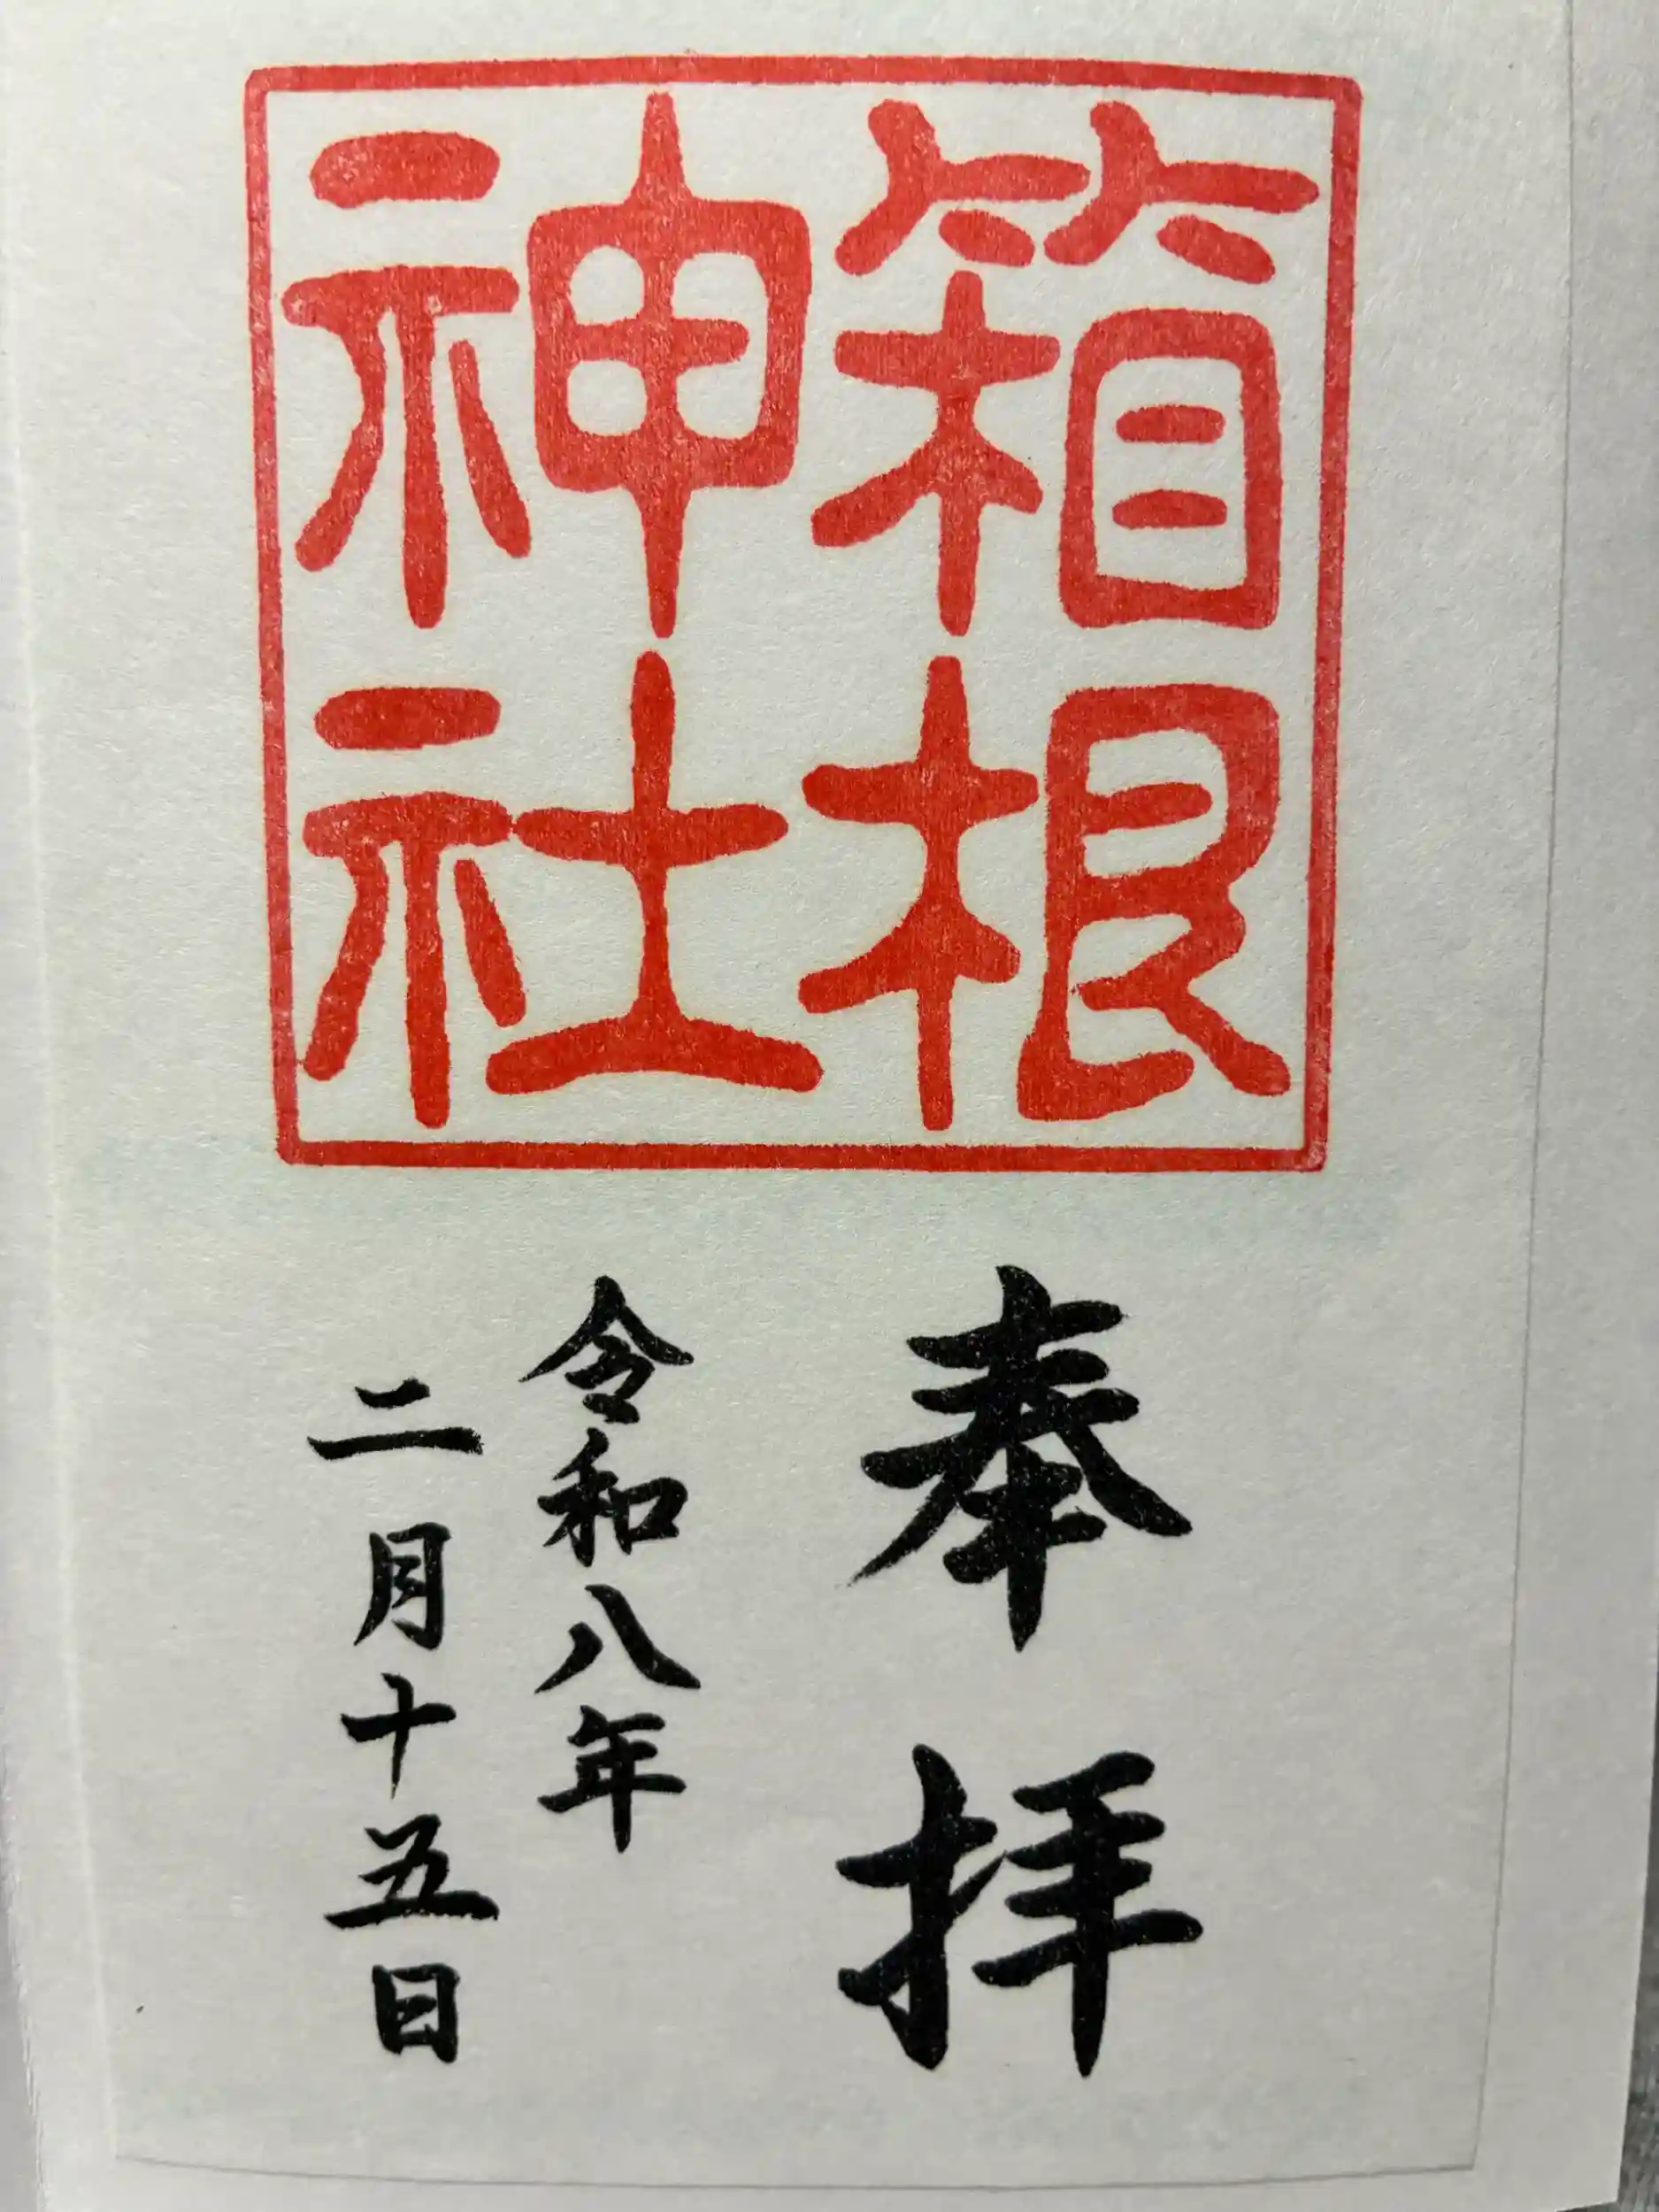 箱根
神社
奉拝
令和八年
二月十五日